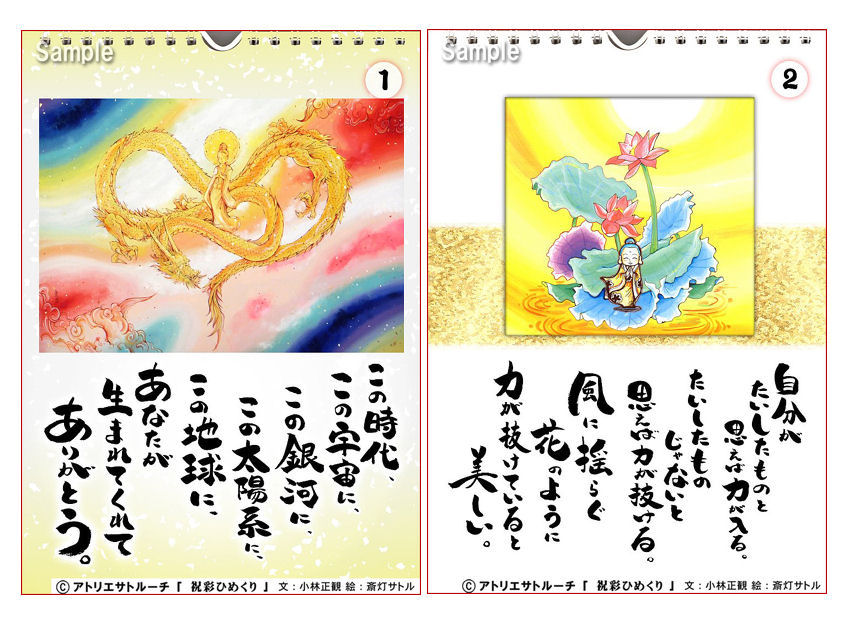 Sample
1
この時代、
この宇宙に、
この銀河に、
この太陽系に、
この地球に、
あなたが
生まれてくれて
ありがとう。
© アトリエサトルーチ『 祝彩ひめくり 』 文：小林正観 絵：斎灯サトル
Sample
2
自分が
たいしたものと
思えば力が入る。
たいしたもの
じゃないと
思えば力が抜ける。
風に揺らぐ
花のように
力が抜けていると
美しい。
© アトリエサトルーチ『 祝彩ひめくり 』 文：小林正観 絵：斎灯サトル